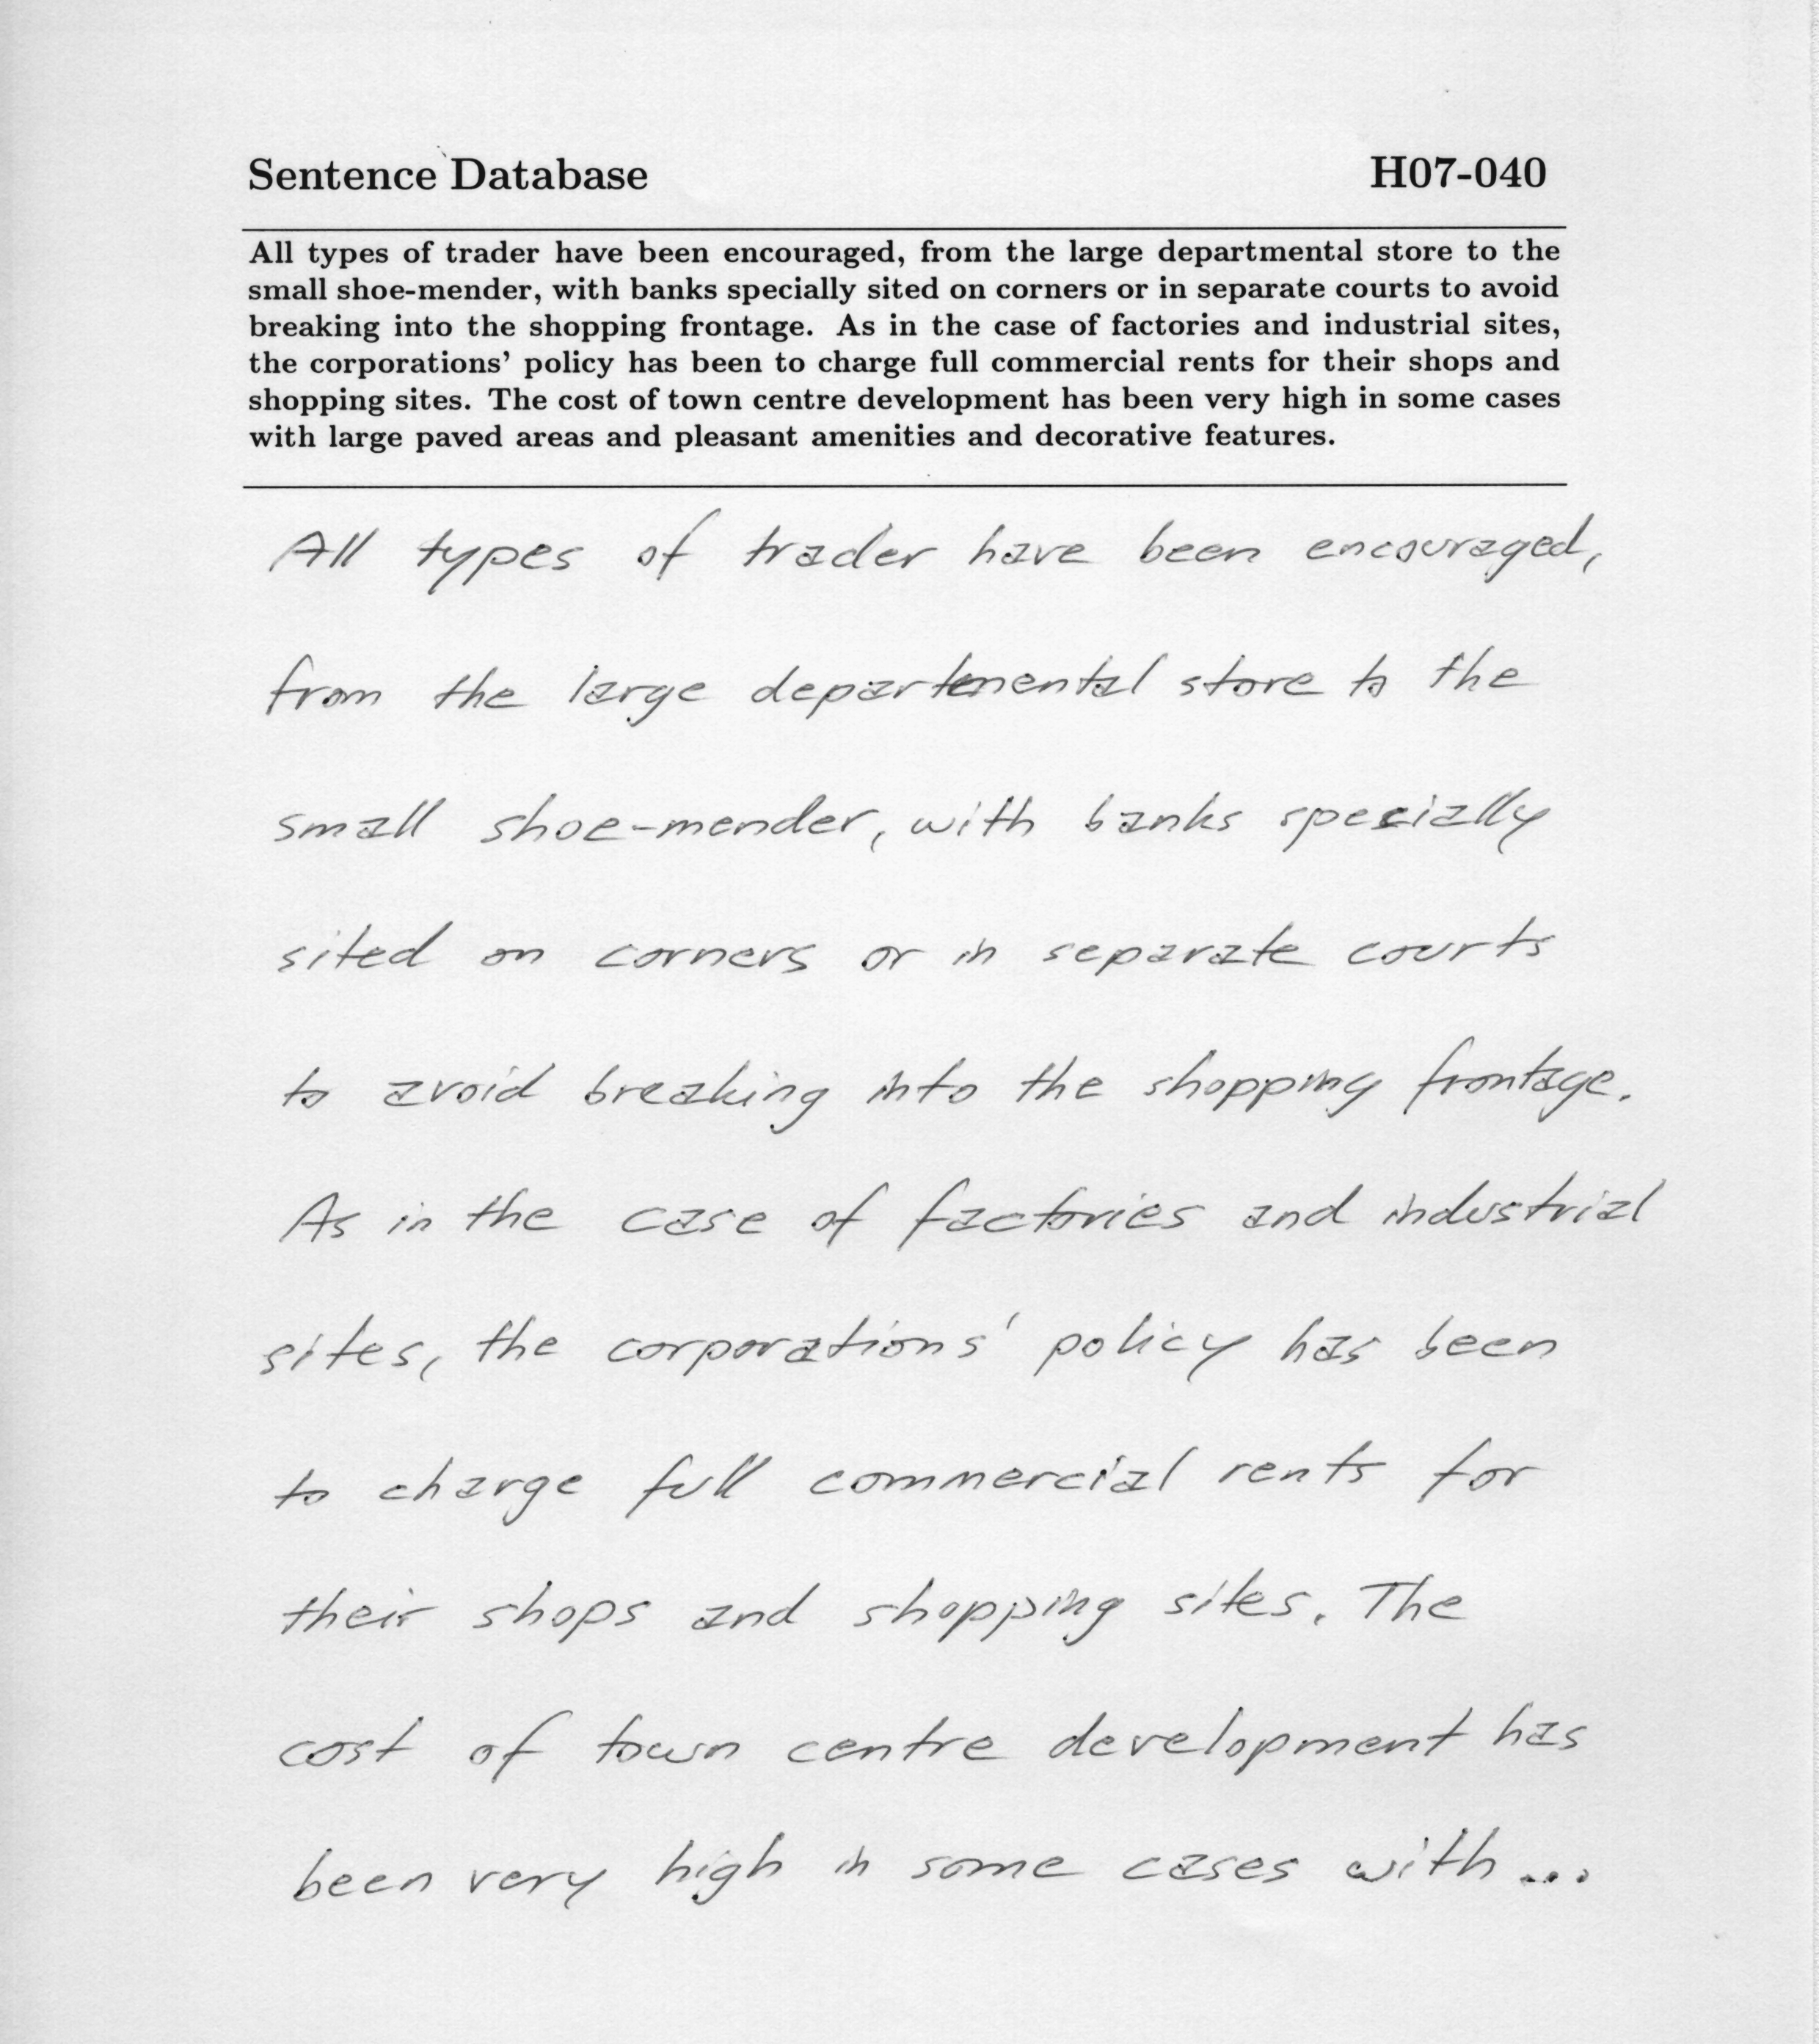 Sentence Database H07-040
All types of trader have been encouraged, from the large departmental store to the
small shoe-mender, with banks specially sited on corners or in separate courts to avoid
breaking into the shopping frontage. As in the case of factories and industrial sites,
the corporations' policy has been to charge full commercial rents for their shops and
shopping sites. The cost of town centre development has been very high in some cases
with large paved areas and pleasant amenities and decorative features.
All types of trader have been encouraged,
from the large departmental store to the
small shoe-mender, with banks specially
sited on corners or in separate courts
to avoid breaking into the shopping frontage.
As in the case of factories and industrial
sites, the corporations' policy has been
to charge full commercial rents for
their shops and shopping sites. The
cost of town centre development has
been very high in some cases with...